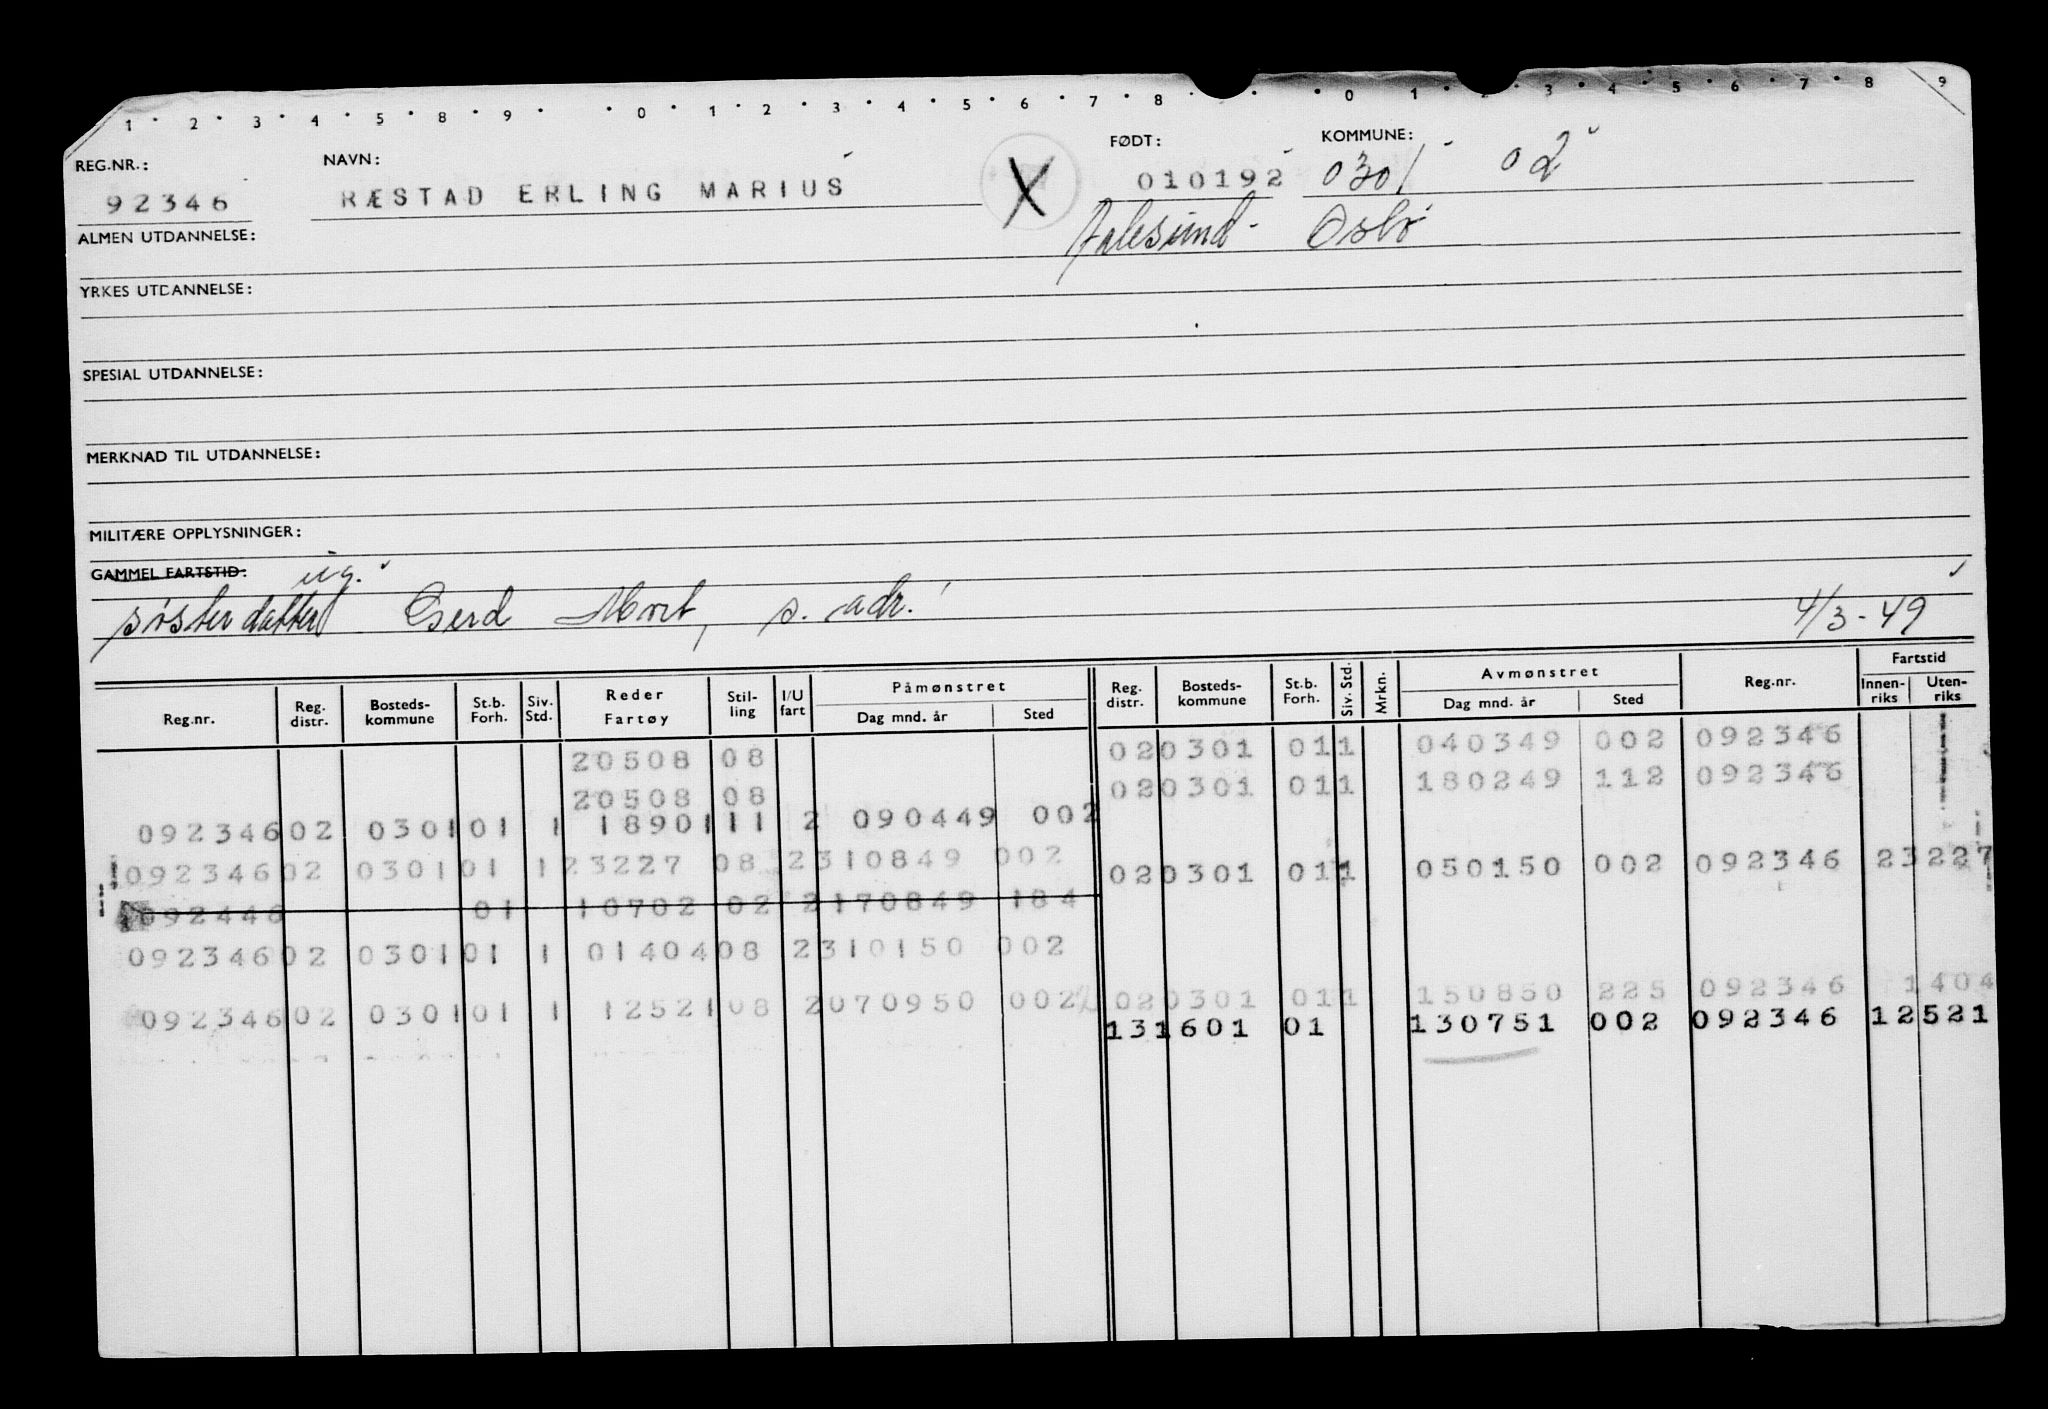 1 · 2 · 3 · 4 · 5 · 8 · 9 · 0 · 1 · 2 · 3 · 4 · 5 · 6 · 7 · 8 · · 0 1 · 2 · 3 · 4 · 5 · 6 · 7 · 8 9
REG.NR.: NAVN: FØDT: KOMMUNE:
92346 RÆSTAD ERLING MARIUS X 010192 0301 02
ALMEN UTDANNELSE: Aalesund - Oslo
YRKES UTDANNELSE:
SPESIAL UTDANNELSE:
MERKNAD TIL UTDANNELSE:
MILITÆRE OPPLYSNINGER:
GAMMEL FARTSTID: ug.
søsterdatter Gerd s. adr. 4/3-49
Reg.nr. Reg. distr. Bosteds-kommune St.b. Forh. Siv. Std. Reder Fartøy Stil-ling I/U fart Påmønstret Dag mnd. år Sted Reg. distr. Bosteds-kommune St.b. Forh. Siv. Std. Mrkn. Avmønstret Dag mnd. år Sted Reg.nr. Fartstid Innen-riks Uten-riks
20508 08 020301 011 040349 002 092346
20508 08 020301 011 180249 112 092346
092346 02 0301 01 1 18901 11 2 090449 002
092346 02 0301 01 1 23227 08 2 310849 002 020301 011 050150 002 092346 23227
092446 01 10702 02 2 170849 184
092346 02 0301 01 1 01404 08 2 310150 002
020301 011 150850 225 092346 1404
092346 02 0301 01 1 12521 08 2 070950 002 131601 01 130751 002 092346 12521